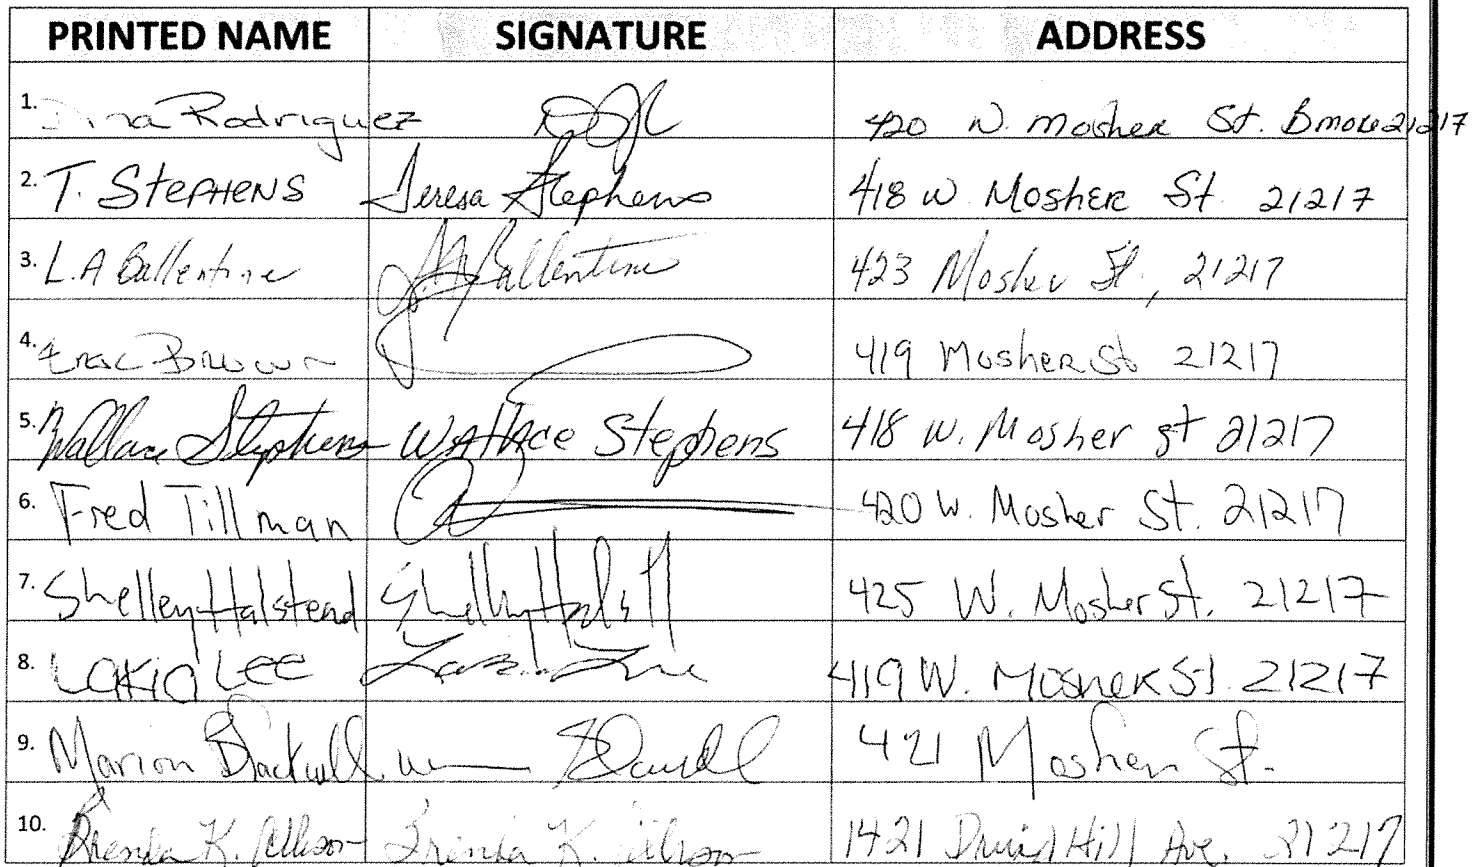 PRINTED NAME SIGNATURE ADDRESS
1. Dina Rodriguez 420 W. Mosher St. Bmore 21217
2. T. STEPHENS Teresa Stephens 418 W Mosher St. 21217
3. L.A Ballentine L.A Ballentine 423 Mosher St, 21217
4. Eric Brown 419 Mosher St 21217
5. Wallace Stephens Wallace Stephens 418 W. Mosher St 21217
6. Fred Tillman 420 W. Mosher St. 21217
7. Shelley Halstead Shelley Halstead 425 W. Mosher St. 21217
8. Lakia LEE 419 W. Mosher St. 21217
9. Marion Blackwell 421 Mosher St.
10. Brenda K. Allison Brenda K. Allison 1421 Druid Hill Ave. 21217